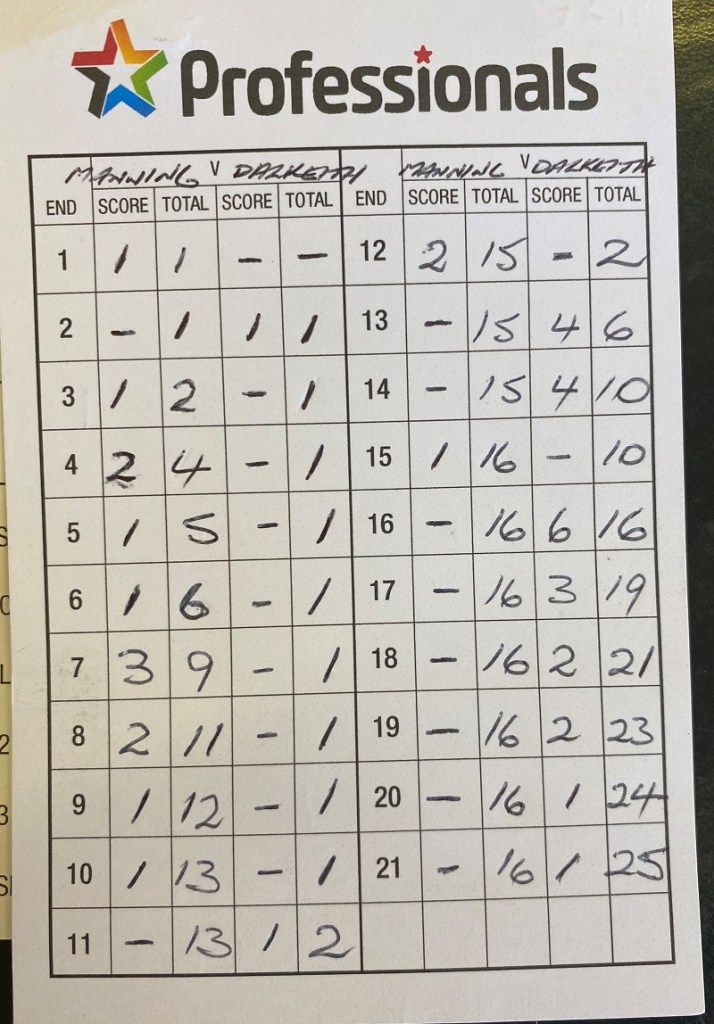 Professionals
MANNING V DALKEITH MANNING V DALKEITH
END SCORE TOTAL SCORE TOTAL END SCORE TOTAL SCORE TOTAL
1 1 1 - - 12 2 15 - 2
2 - 1 1 1 13 - 15 4 6
3 1 2 - 1 14 - 15 4 10
4 2 4 - 1 15 1 16 - 10
5 1 5 - 1 16 - 16 6 16
6 1 6 - 1 17 - 16 3 19
7 3 9 - 1 18 - 16 2 21
8 2 11 - 1 19 - 16 2 23
9 1 12 - 1 20 - 16 1 24
10 1 13 - 1 21 - 16 1 25
11 - 13 1 2